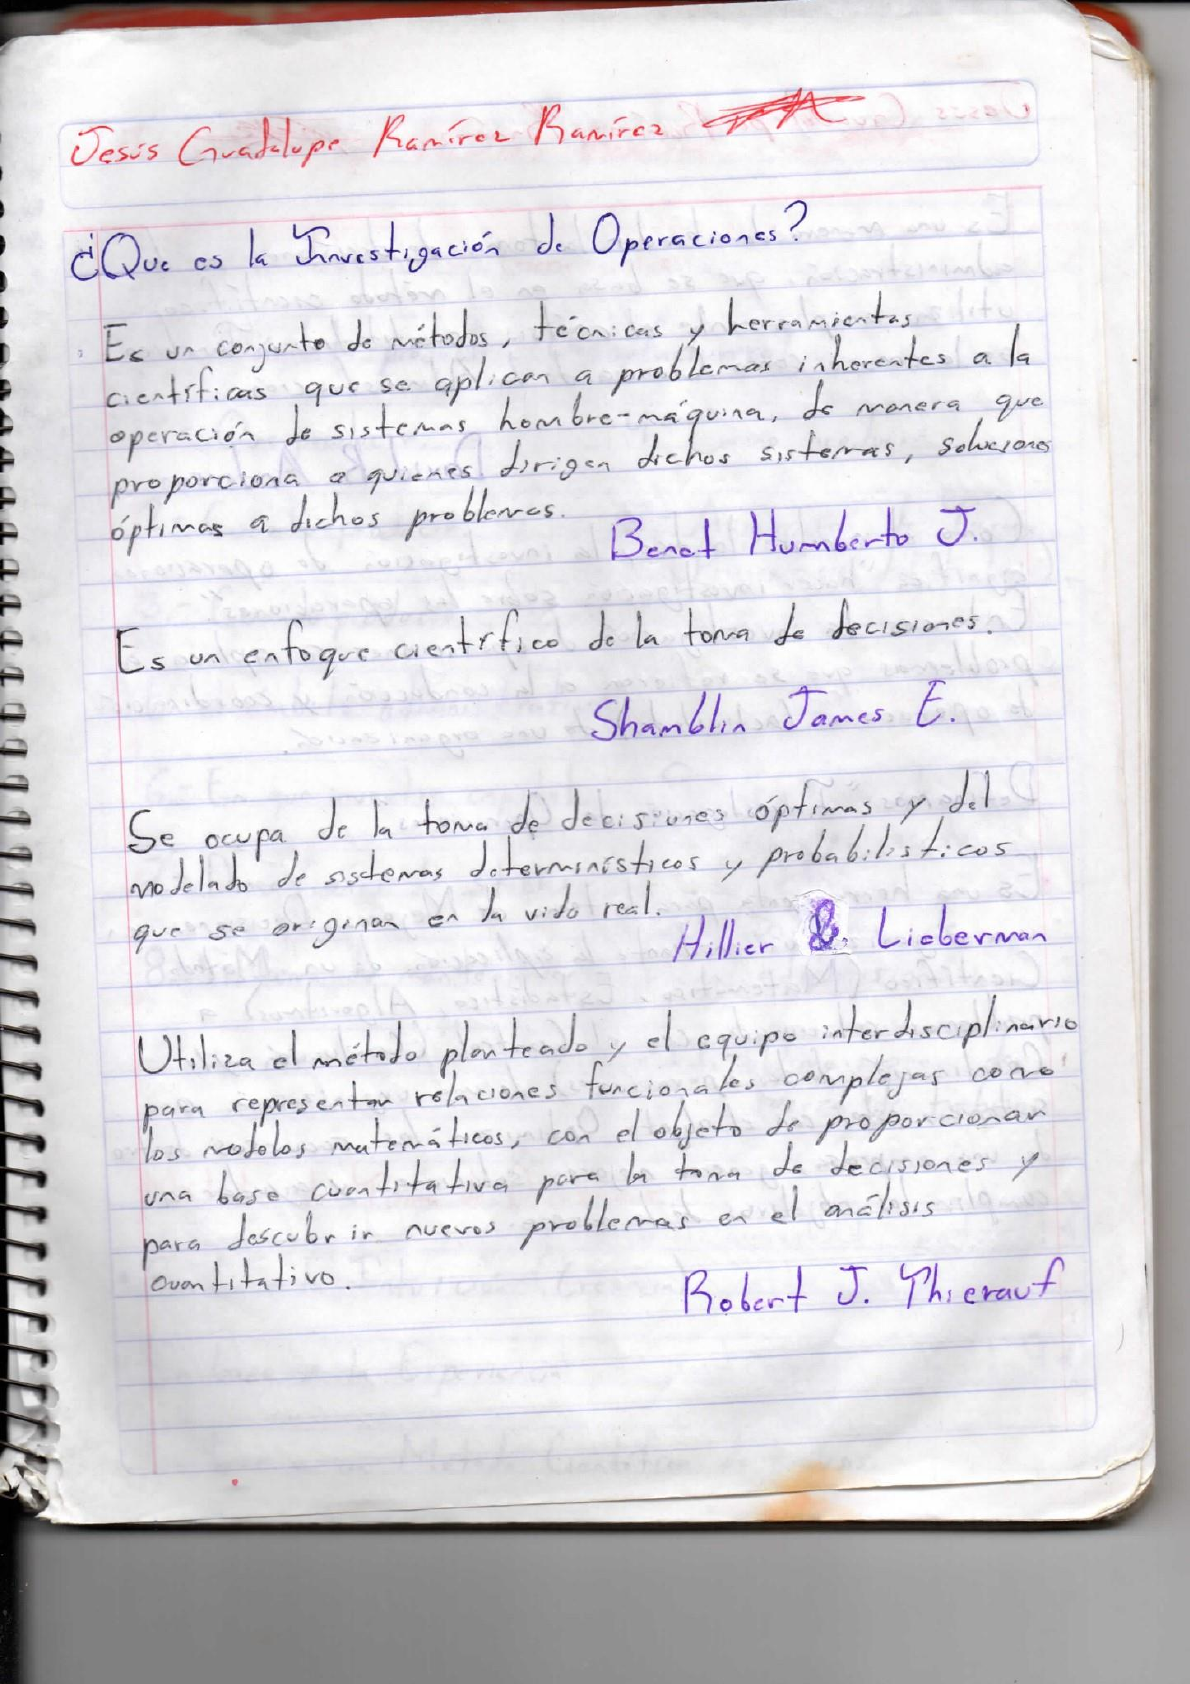 Jesús Guadalupe Ramírez Ramírez
¿Que es la Investigación de Operaciones?
Es un conjunto de métodos, técnicas y herramientas
científicas que se aplican a problemas inherentes a la
operación de sistemas hombre-máquina, de manera que
proporciona a quienes dirigen dichos sistemas, soluciones
óptimas a dichos problemas.
Benet Humberto J.
Es un enfoque científico de la toma de decisiones.
Shamblin James E.
Se ocupa de la toma de decisiones óptimas y del
modelado de sistemas determinísticos y probabilisticos
que se originan en la vida real.
Hillier &. Lieberman
Utiliza el método planteado y el equipo interdisciplinario
para representar relaciones funcionales complejas como
los modolos matemáticos, con el objeto de proporcionar
una base cuantitativa para la toma de decisiones y
para descubrir nuevos problemas en el análisis
cuantitativo.
Robert J. Thierauf